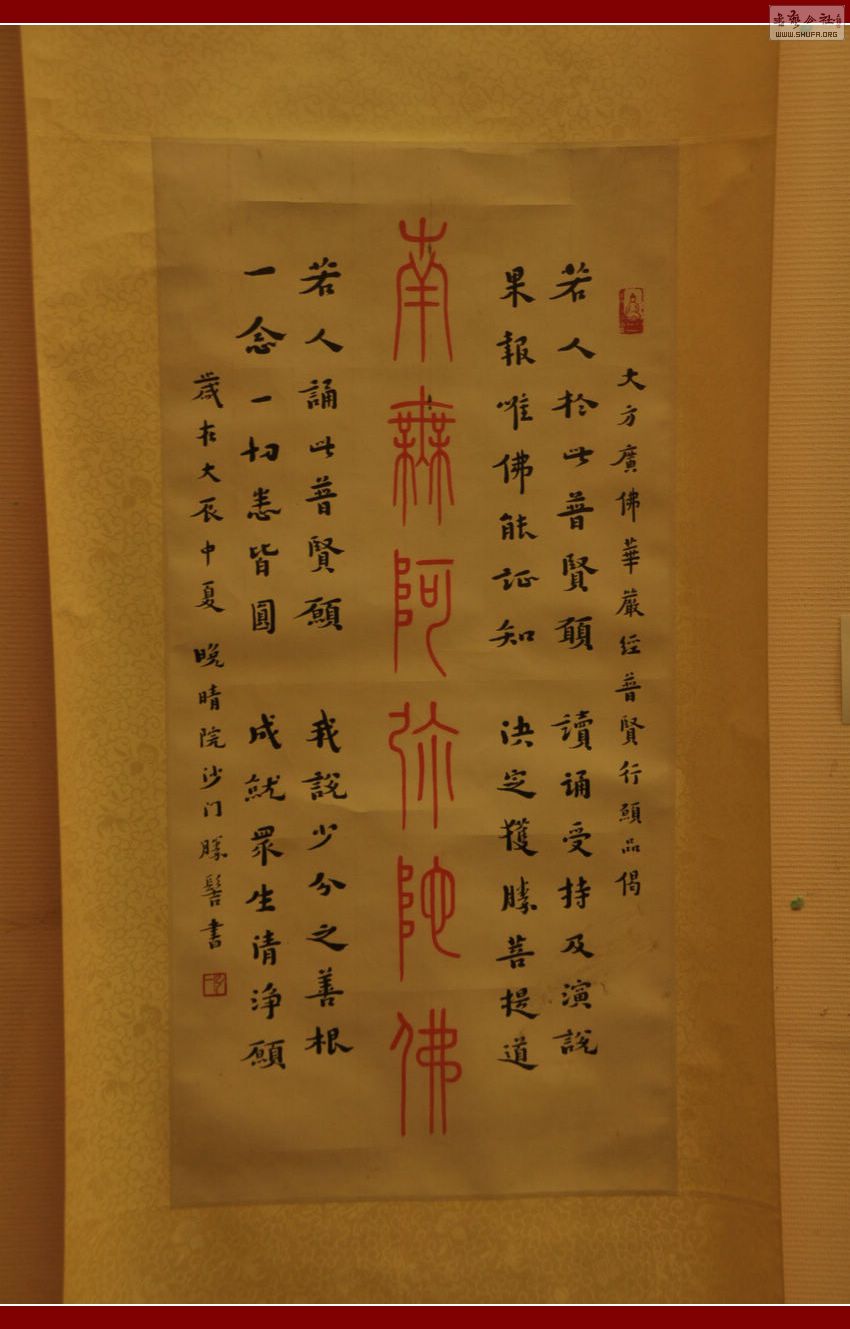 大方廣佛華嚴經普賢行願品偈
若人於此普賢願 讀誦受持及演說
果報唯佛能証知 決定獲勝菩提道
南無阿弥陀佛
若人誦此普賢願 我說少分之善根
一念一切悉皆圓 成就眾生清淨願
歲在大辰中夏 晚晴院沙门勝髻書
書藝公社
WWW.SHUFA.ORG